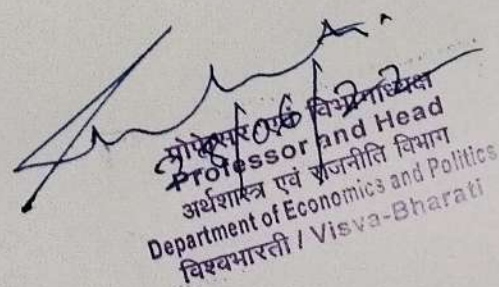 प्रोफेसर एवं विभागाध्यक्ष
Professor and Head
अर्थशास्त्र एवं राजनीति विभाग
Department of Economics and Politics
विश्वभारती / Visva-Bharati